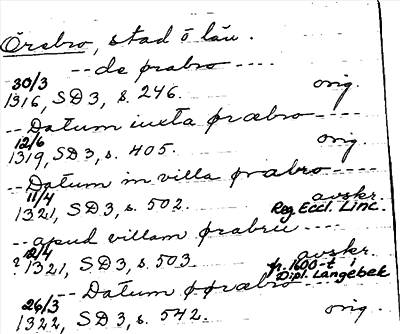 Örebro, stad ö län.
--de prabro----
30/3
1316, SD3, s. 246. orig.
--Datum iuxta præbro----
12/6
1319, SD3, s. 405. orig.
--Datum in villa præbro----
11/4
1321, SD3, s. 502. avskr.
Reg. Eccl. Linc.
--apud villam prabru--
? 12/4 avskr.
1321, SD3, s. 503. fr. 1600-t i
Dipl. Langebek
--Datum præbro----
26/3
1322, SD3, s. 542. orig.